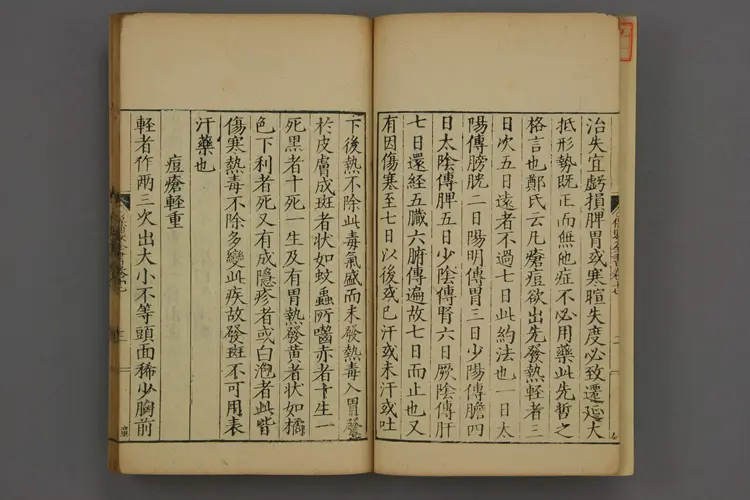 治失宜虧損脾胃或寒暄失度必致遷延大
抵形勢既正而無他症不必用藥此先哲之
格言也鄭氏云凡瘡痘欲出先發熱輕者三
日次五日遠者不過七日此約法也一日太
陽傳膀胱二日陽明傳胃三日少陽傳膽四
日太陰傳脾五日少陰傳腎六日厥陰傳肝
七日還経五臟六腑傳遍故七日而止也又
有因傷寒至七日以後或已汗或未汗或吐
下後熱不除此毒氣盛而未發熱毒入胃發
於皮膚成斑者狀如蚊蟲所嚙赤者十生一
死黑者十死一生及有胃熱發黃者狀如橘
色下利者死又有成隱疹者或白泡者此皆
傷寒熱毒不除多變此疾故發斑不可用表
汗藥也
痘瘡輕重
輕者作兩三次出大小不等頭面稀少胸前